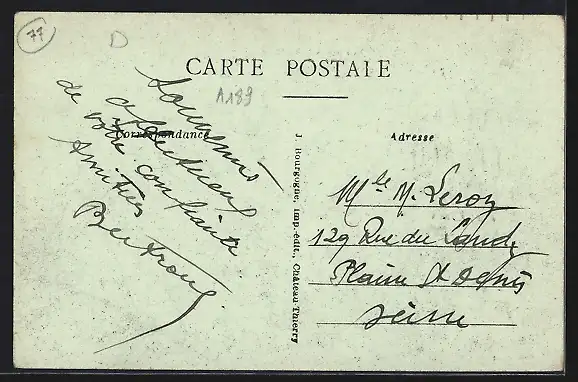 77
D
CARTE POSTALE
A189
Correspondance
Adresse
Souvenirs
affectueux
de votre confiante
Amitiés
Bertrand
J. Bourgogne, imp.-édit., Château-Thierry
Mlle M. Leroy
129 Rue du Landy
Plaine St Denis
Seine